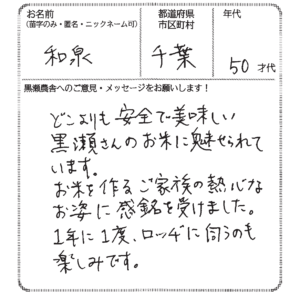 お名前
(苗字のみ・匿名・ニックネーム可)
都道府県
市区町村
年代
和泉
千葉
50才代
黒瀬農舎へのご意見・メッセージをお願いします!
どこよりも安全で美味しい
黒瀬さんのお米に魅せられて
います。
お米を作るご家族の熱心な
お姿に感銘を受けました。
1年に1度、ロッヂに伺うのも
楽しみです。